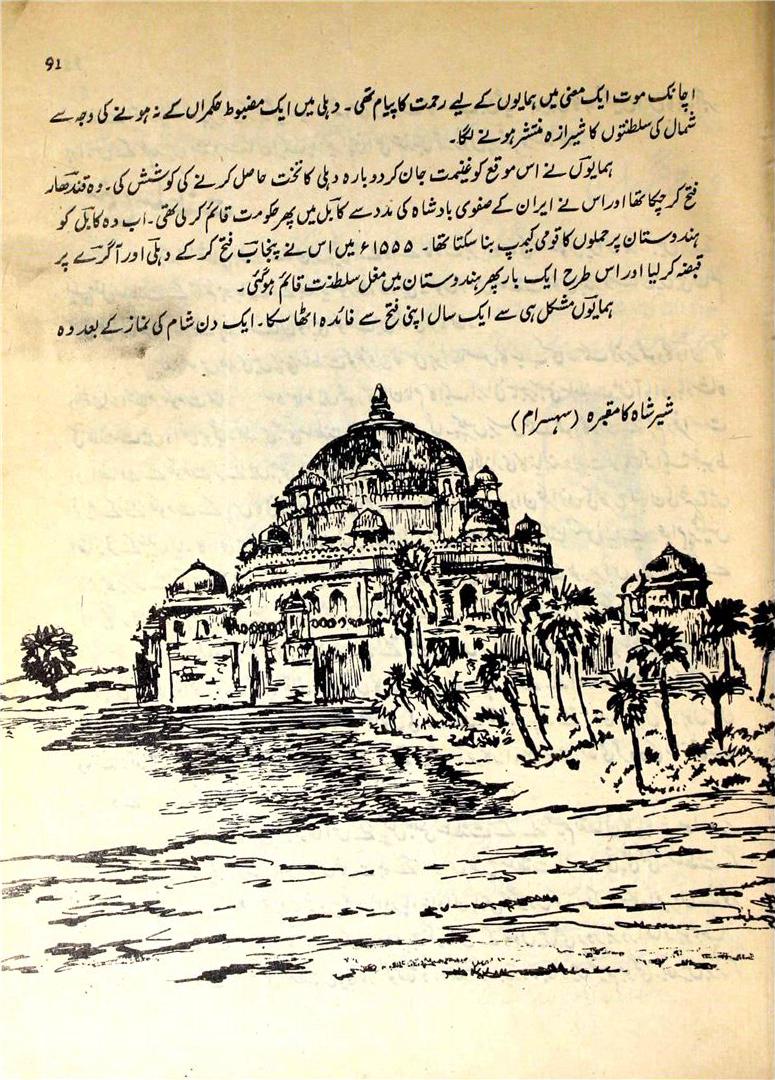 91
اچانک موت ایک معنی میں ہمایوں کے لیے رحمت کا پیام تھی۔ دہلی میں ایک مضبوط حکمراں کے نہ ہونے کی وجہ سے
شمال کی سلطنتوں کا شیرازہ منتشر ہونے لگا۔
ہمایوں نے اس موقع کو غنیمت جان کر دوبارہ دہلی کا تخت حاصل کرنے کی کوشش کی۔ وہ قندھار
فتح کر چکا تھا اور اس نے ایران کے صفوی بادشاہ کی مدد سے کابل میں پھر حکومت قائم کر لی تھی۔ اب وہ کابل کو
ہندوستان پر حملوں کا قومی کیمپ بنا سکتا تھا۔ ۱۵۵۵ء میں اس نے پنجاب فتح کر کے دہلی اور آگرے پر
قبضہ کر لیا اور اس طرح ایک بار پھر ہندوستان میں مغل سلطنت قائم ہو گئی۔
ہمایوں مشکل ہی سے ایک سال اپنی فتح سے فائدہ اٹھا سکا۔ ایک دن شام کی نماز کے بعد وہ
شیر شاہ کا مقبرہ (سہسرام)